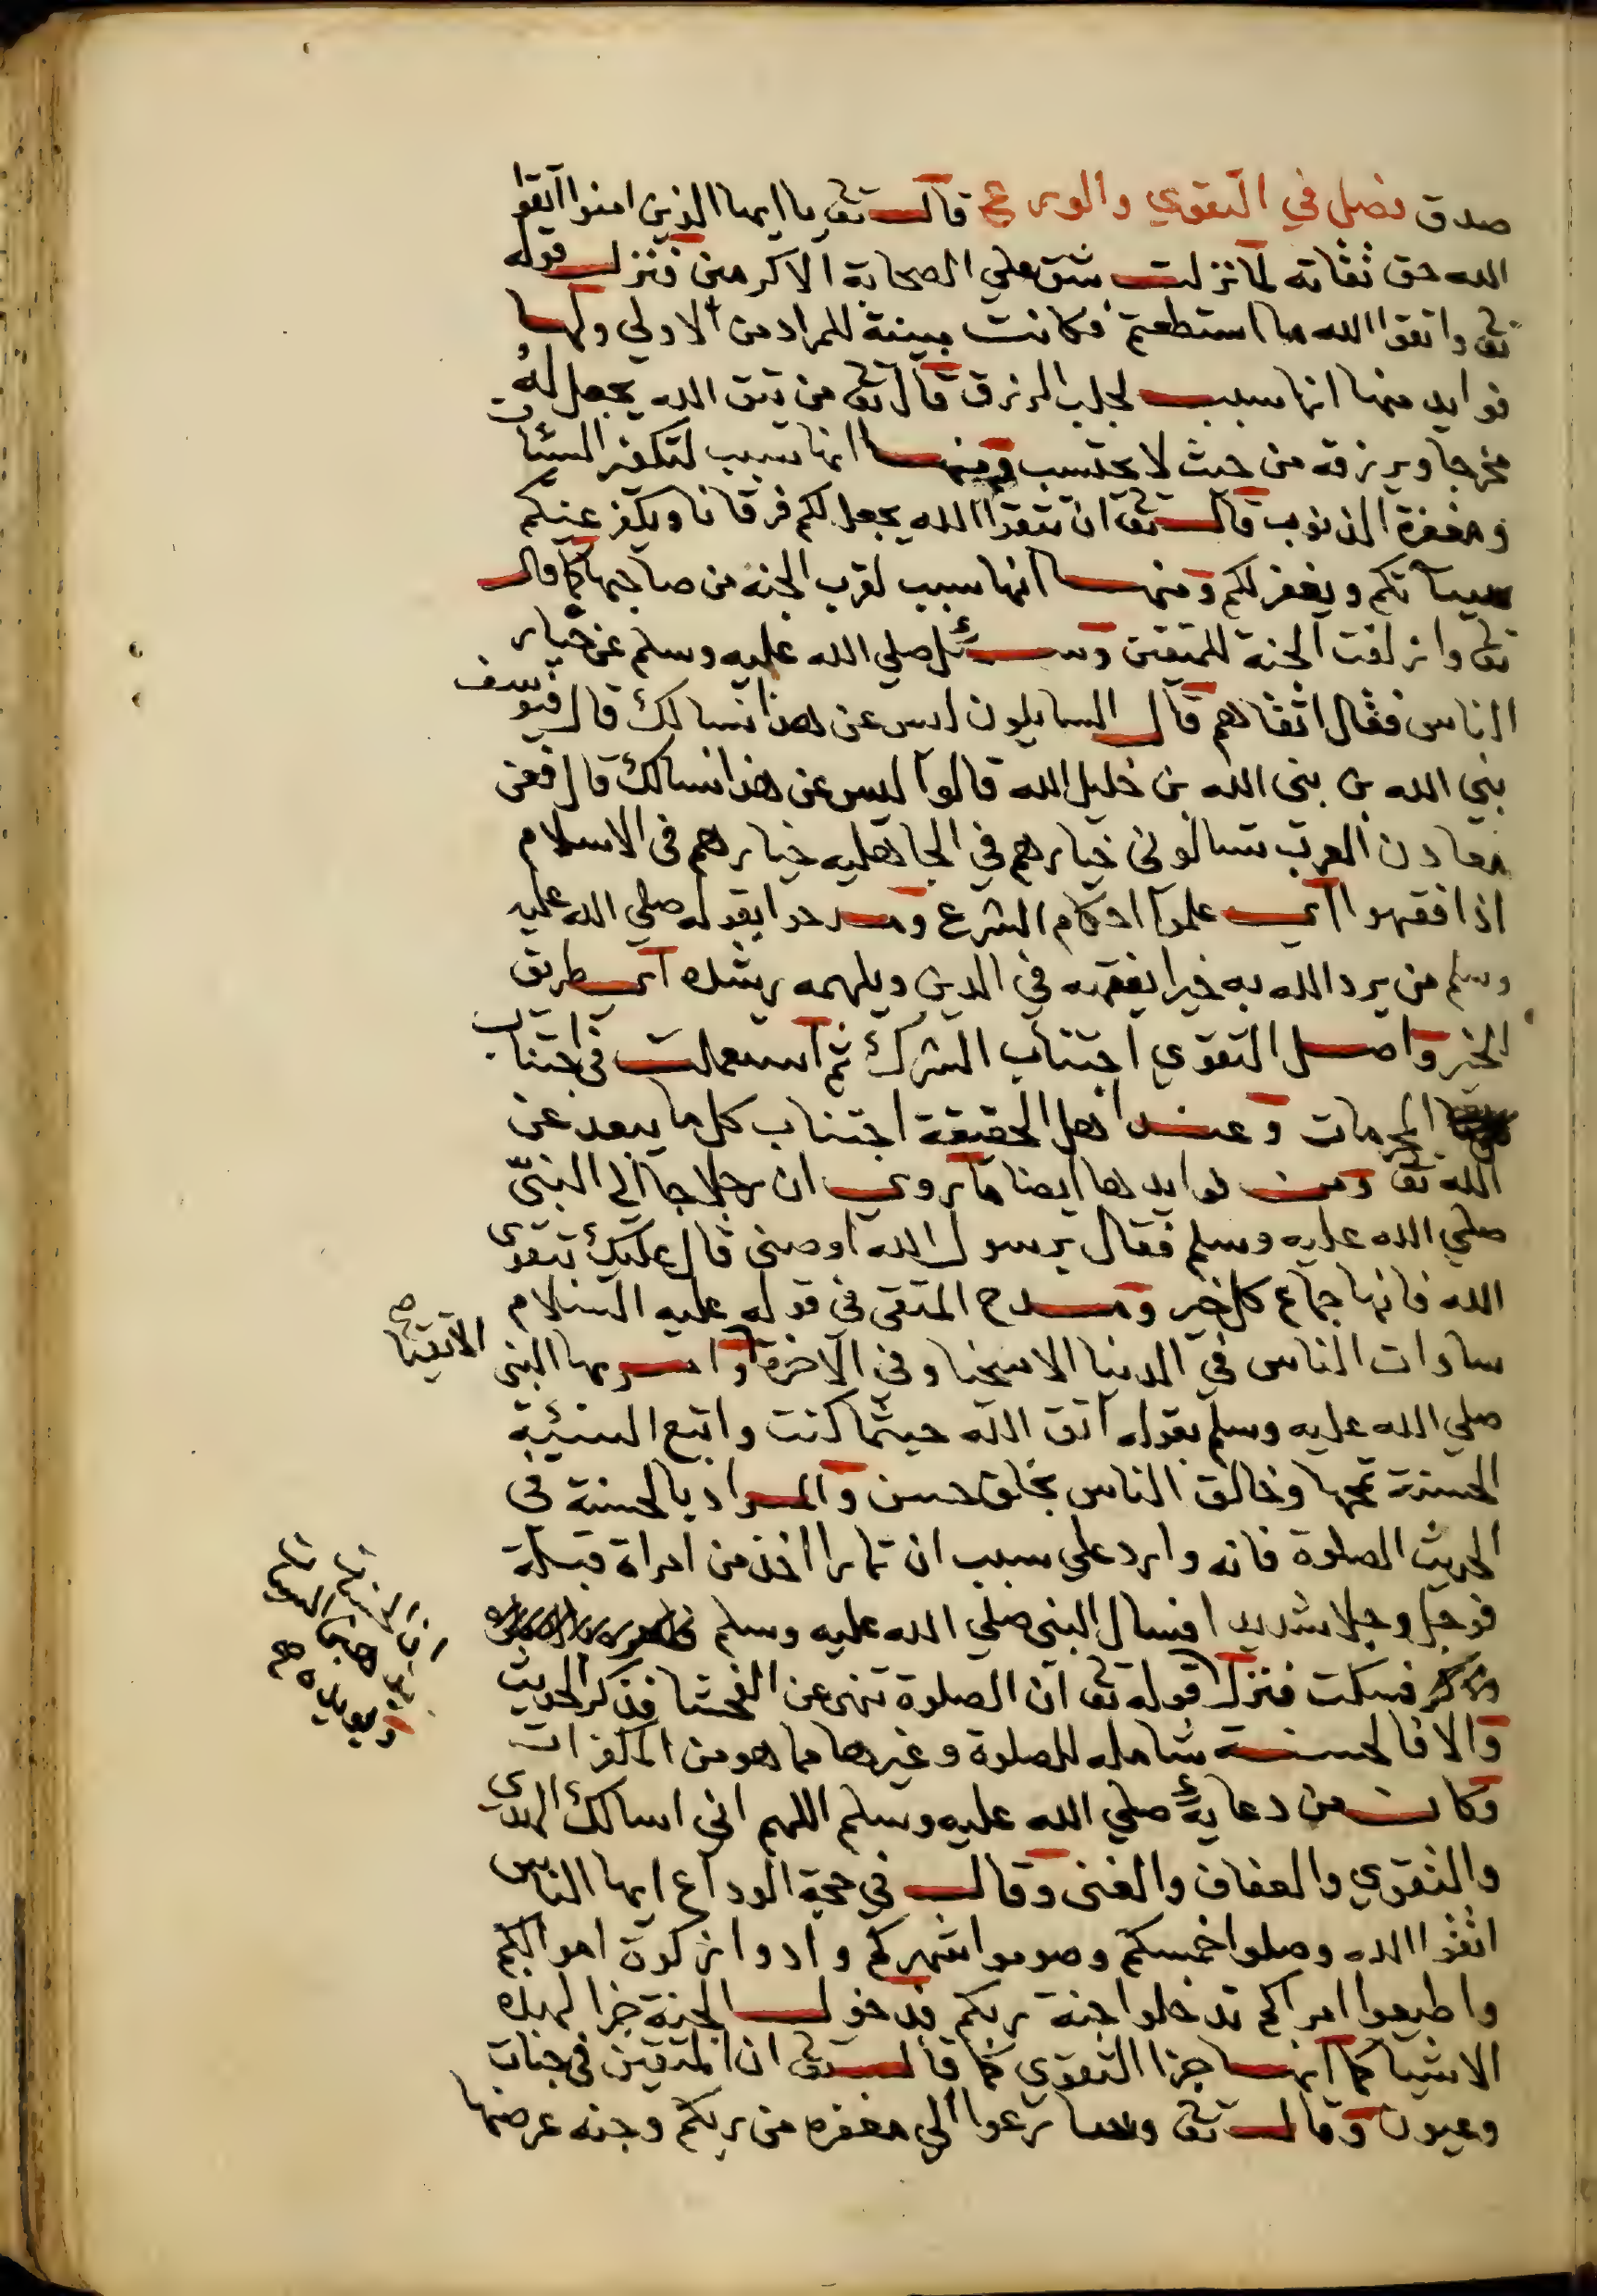 صدق فصل في التقوي والورع قال تع يا ايها الذين امنوا اتقوا
الله حق تقاته لما نزلت شق علي الصحابة الاكرمين فنزل قوله
تع واتقوا الله ما استطعتم فكانت مبينة للمراد من الاولي ولها
فوايد منها انها سبب لجلب الرزق قال تع من يتق الله يجعل له
مخرجا ويرزقه من حيث لا يحتسب ومنها انها سبب لتكفير السئات
ومغفرة الذنوب قال تع ان تتقوا الله يجعل لكم فرقانا ويكفر عنكم
سيئاتكم ويغفر لكم ومنها انها سبب لقرب الجنة من صاحبها كما قال
تع وازلفت الجنة للمتقين وسئل صلي الله عليه وسلم عن خيار
الناس فقال اتقاهم قال السايلون ليس عن هذا نسالك قال فيوسف
نبي الله بن نبي الله بن خليل الله قالوا ليس عن هذا نسالك قال فعن
معادن العرب تسالوني خيارهم في الجاهليه خيارهم في الاسلام
اذا فقهوا اي علموا احكام الشرع ومدحوا بقوله صلي الله عليه
وسلم من يرد الله به خيرا يفقهه في الدين ويلهمه رشده اي طريق
الخير واصل التقوي اجتناب الشرك ثم استعملت في اجتناب
المحرمات وعند اهل الحقيقة اجتناب كل ما يبعد عن
الله تع ومن فوايدها ايضا ما روي ان رجلا جا الي النبي
صلي الله عليه وسلم فقال يرسول الله اوصني قال عليك بتقوي
الله فانها جماع كل خير ومدح المتقي في قوله عليه السلام
سادات الناس في الدنيا الاسخيا وفي الاخرة وامر بها النبي
الاتقيا صح
صلي الله عليه وسلم بقوله اتق الله حيثما كنت واتبع السئية
الحسنة تمحها وخالق الناس بخلق حسن والمراد بالحسنة في
الحديث الصلوة فانه وارد علي سبب ان تمارا اخذ من امراة قبلة
فوجل وجلا شديدا فسال النبي صلي الله عليه وسلم
فسكت فنزل قوله تع ان الصلوة تنهى عن الفحشا فذكر الحديث
ان الحسنات
يذهبن السيات
ويؤيده صح
والا فالحسنة شامله للصلوة وغيرها مما هو من المكفرات
وكان من دعايه صلي الله عليه وسلم اللهم اني اسالك الهدي
والتقوي والعفاف والغنى وقال في حجة الوداع ايها الناس
اتقوا الله وصلوا خمسكم وصوموا شهركم وادوا زكوة اموالكم
واطيعوا امراكم تدخلوا جنة ربكم فدخول الجنة جزا لهذه
الاشيا كما انها جزا التقوي كما قال تع ان المتقين في جنات
وعيون وقال تع وسارعوا الي مغفره من ربكم وجنه عرضها